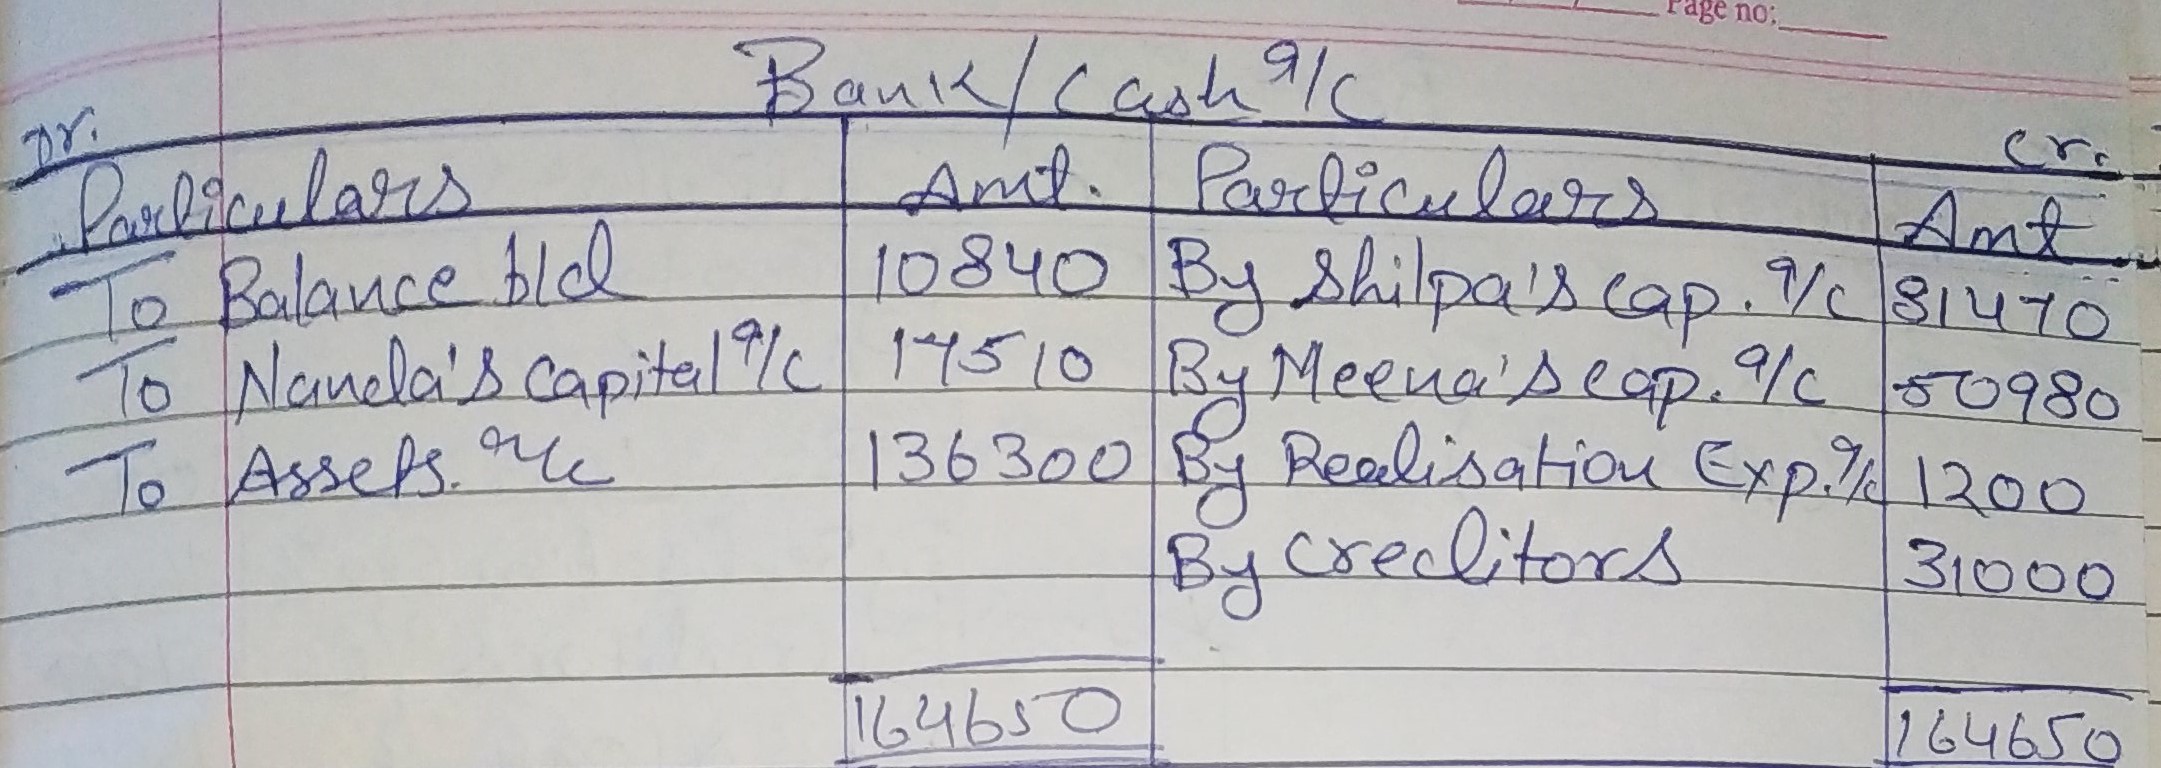 Page no:
Bank/Cash a/c
Dr. Cr.
Particulars Amt. Particulars Amt
To Balance b/d 10840 By Shilpa's cap. a/c 81470
To Nanda's Capital a/c 17510 By Meena's cap. a/c 50980
To Assets. a/c 136300 By Realisation Exp. a/c 1200
By Creditors 31000
164650 164650